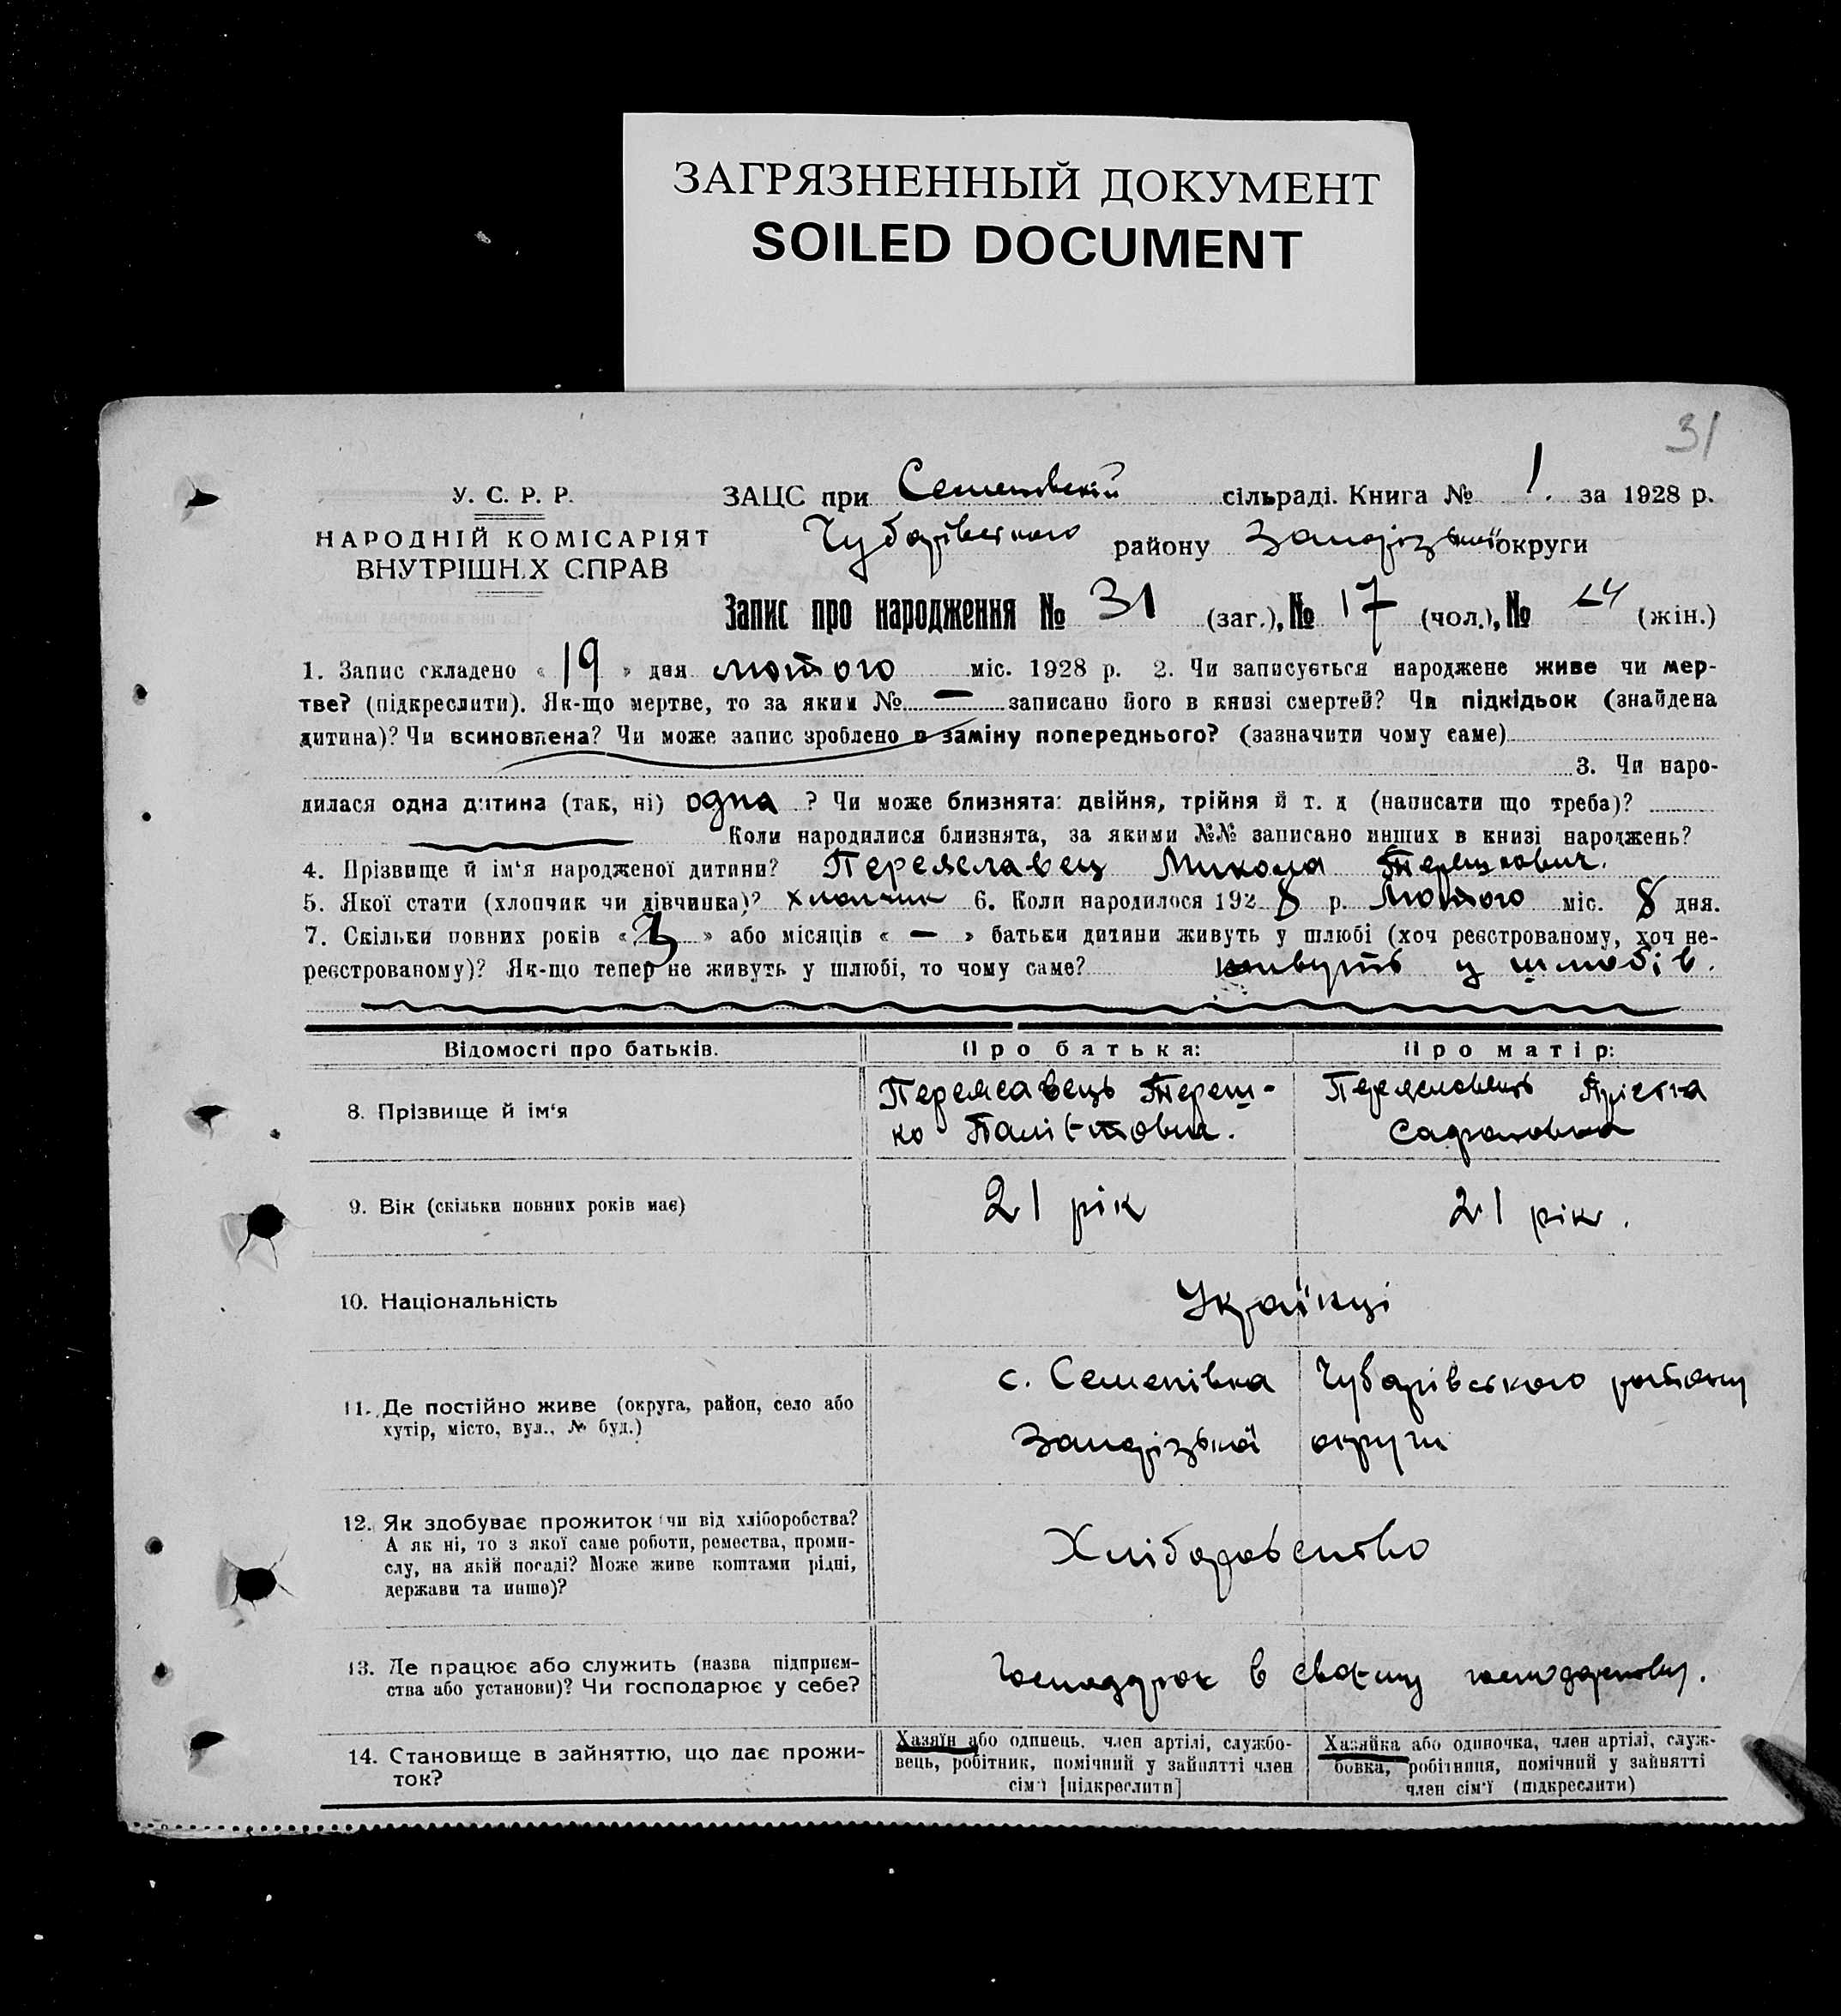 ЗАГРЯЗНЕННЫЙ ДОКУМЕНТ
SOILED DOCUMENT
31
У. С. Р. Р.
НАРОДНІЙ КОМІСАРІЯТ
ВНУТРІШН.Х СПРАВ
ЗАЦС при Семеновській сільраді. Книга № 1. за 1928 р.
Чубарівського району Запорізької округи
Запис про народження № 31 (заг.), № 17 (чол.), № 14 (жін.)
1. Запис складено « 19 » дня лютого міс. 1928 р. 2. Чи записується народжене живе чи мер-
тве? (підкреслити). Як-що мертве, то за яким № — записано його в книзі смертей? Чи підкідьок (знайдена
дитина)? Чи всиновлена? Чи може запис зроблено в заміну попереднього? (зазначити чому саме)
3. Чи наро-
дилася одна дитина (так, ні) одна ? Чи може близнята: двійня, трійня й т. д (написати що треба)?
Коли народилися близнята, за якими №№ записано инших в книзі народжень?
4. Прізвище й ім‘я народженої дитини? Переяславец Микола Терешкович.
5. Якої стати (хлопчик чи дівчинка)? хлопчик 6. Коли народилося 1928 р. Лютого міс. 8 дня.
7. Скільки повних років « 3 » або місяців « — » батьки дитини живуть у шлюбі (хоч реєстрованому, хоч не-
реєстрованому)? Як-що тепер не живуть у шлюбі, то чому саме? живуть у шлюбів.
Відомості про батьків.
Про батька:
Про матір:
8. Прізвище й ім‘я
Переяславець Тереш-
ко
Переяславець
9. Вік (скільки повних років має)
21 рік
21 рік.
10. Національність
Українці
11. Де постійно живе (округа, район, село або
хутір, місто, вул., № буд.)
с. Семенівка Чубарівського району
Запорізької округи
12. Як здобуває прожиток (чи від хліборобства?
А як ні, то з якої саме роботи, ремества, проми-
слу, на якій посаді? Може живе коштами рідні,
держави та инше)?
Хліборобство
13. Де працює або служить (назва підприєм-
ства або установи)? Чи господарює у себе?
в своєму господарству.
14. Становище в зайняттю, що дає прожи-
ток?
Хазяїн або одинець, член артілі, службо-
вець, робітник, помічний у зайнятті член
сім‘ї [підкреслити]
Хазяйка або одиночка, член артілі, служ-
бовка, робітниця, помічний у зайнятті
член сім‘ї (підкреслити)